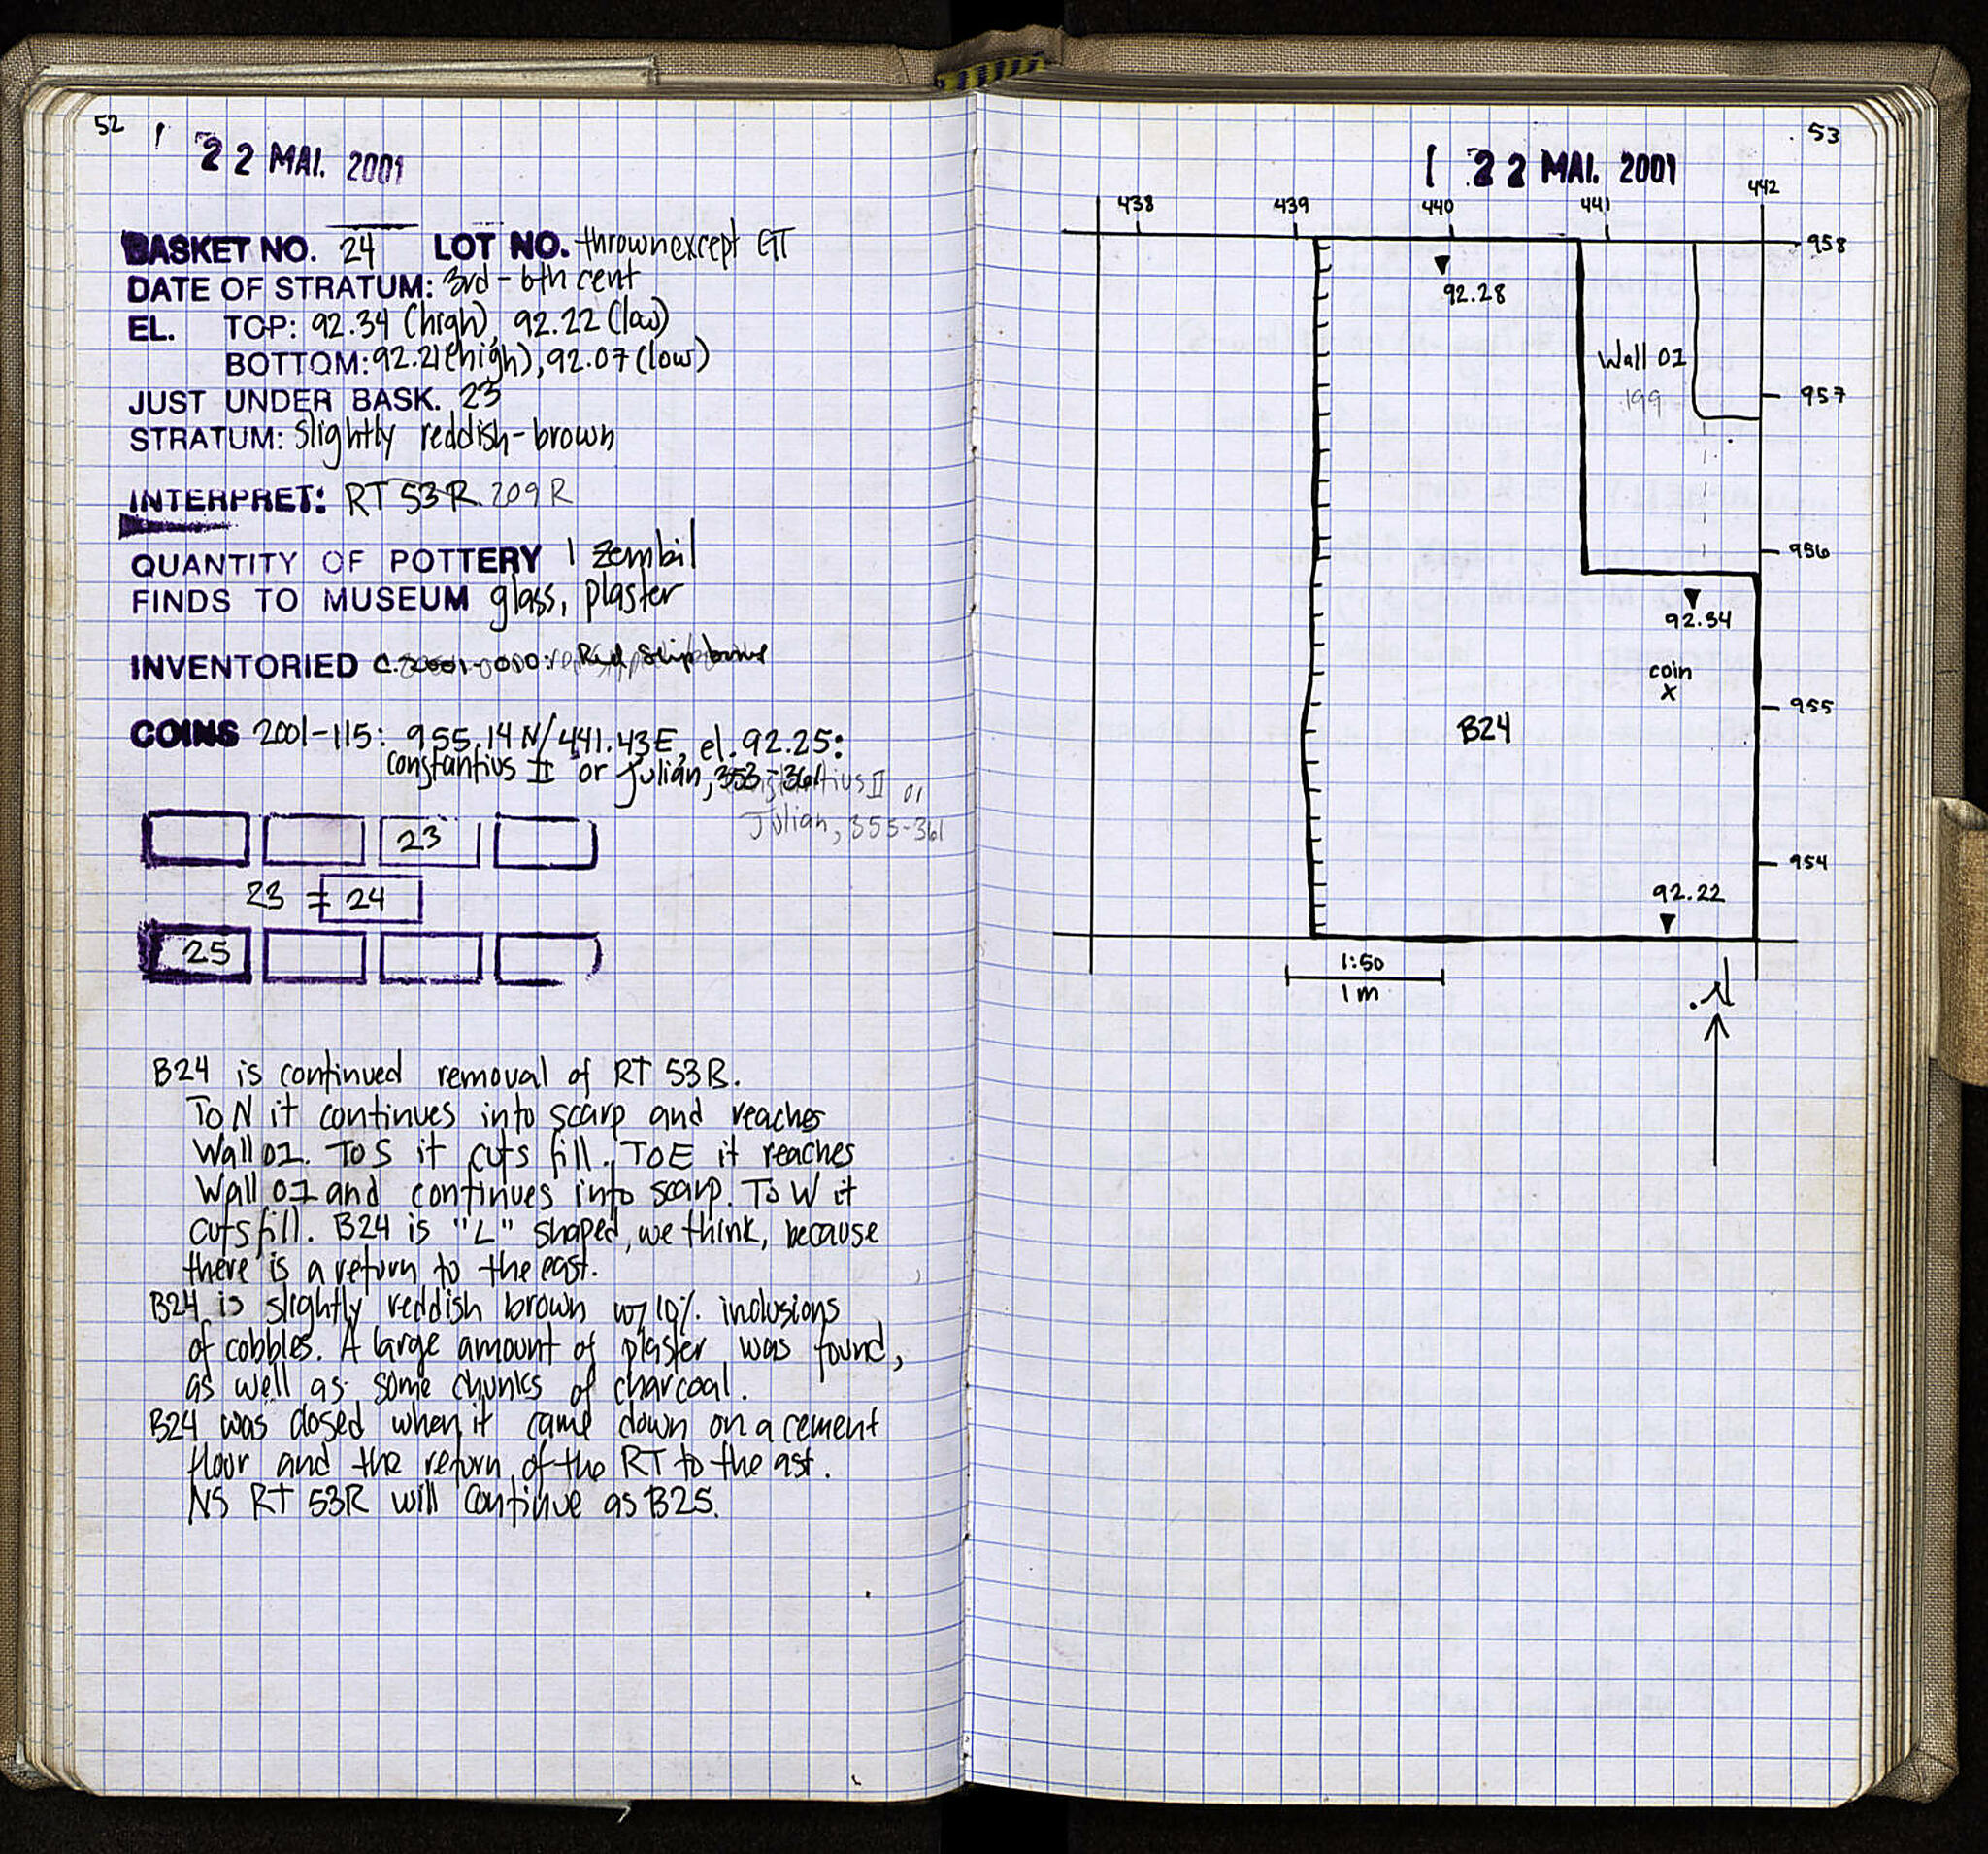 52
22 MAI. 2001
BASKET NO. 24 LOT NO. thrown except GT
DATE OF STRATUM: 3rd-6th cent
EL. TOP: 92.34 (high), 92.22 (low)
BOTTOM: 92.21 (high), 92.07 (low)
JUST UNDER BASK. 23
STRATUM: slightly reddish-brown
INTERPRET: RT 53R 209R
QUANTITY OF POTTERY 1 zembil
FINDS TO MUSEUM glass, plaster
INVENTORIED Red slip
COINS 2001-115: 955.14N/441.43E, el. 92.25:
constantius II or Julian,
II or
Julian, 355-361
23
23 = 24
25
B24 is continued removal of RT 53R.
To N it continues into scarp and reaches
Wall 01. To S it cuts fill. To E it reaches
Wall 01 and continues into scarp. To W it
cuts fill. B24 is "L" shaped, we think, because
there is a return to the east.
B24 is slightly reddish brown w/ 10% inclusions
of cobbles. A large amount of plaster was found,
as well as some chunks of charcoal.
B24 was closed when it came down on a cement
floor and the return of the RT to the east.
NS RT 53R will continue as B25.
53
22 MAI. 2001
438 439 440 441 442
958
92.28
Wall 01
199
957
956
92.34
coin
X
955
B24
954
92.22
1:50
1m
N